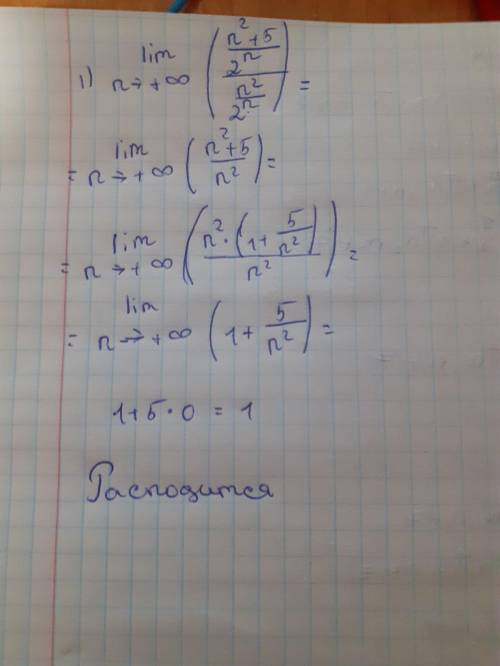 1) lim n→+∞ ( ((n²+5)/2ⁿ) / (n²/2ⁿ) ) =
= lim n→+∞ ( (n²+5)/n² ) =
= lim n→+∞ ( (n²·(1+5/n²))/n² ) =
= lim n→+∞ ( 1+5/n² ) =
1+5·0 = 1
Расходится